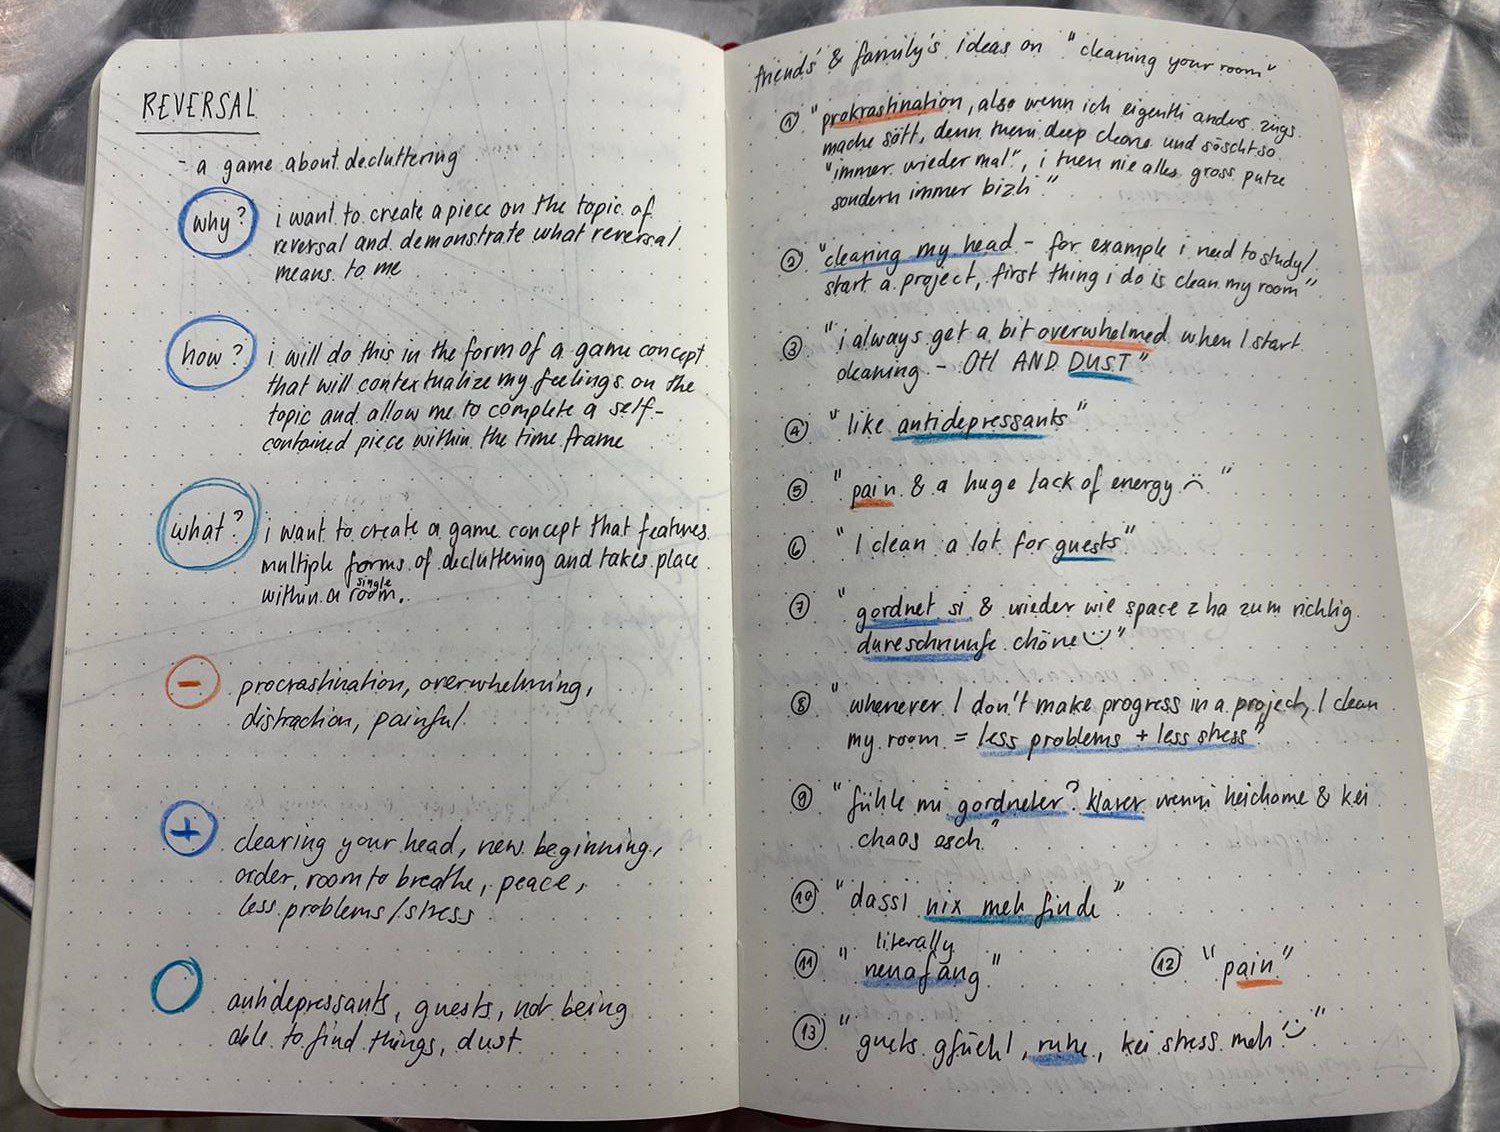 REVERSAL
- a game about decluttering
why? i want to create a piece on the topic of
reversal and demonstrate what reversal
means to me
how? i will do this in the form of a game concept
that will contextualize my feelings on the
topic and allow me to complete a self-
contained piece within the time frame
what? i want to create a game concept that features
multiple forms of decluttering and takes place
within a single room.
- procrastination, overwhelming,
distraction, painful
+ clearing your head, new beginning,
order, room to breathe, peace,
less problems/stress
antidepressants, guests, not being
able to find things, dust
friends' & family's ideas on "cleaning your room"
1 "prokrastination, also wenn ich eigentli anders zügs
mache sött, denn tueni deep cleane und söscht so
"immer wieder mal", i tuen nie alles gross putze
sondern immer bizli"
2 "clearing my head - for example i need to study/
start a project, first thing i do is clean my room"
3 "i always get a bit overwhelmed when I start
cleaning - OH AND DUST"
4 "like antidepressants"
5 "pain & a huge lack of energy :("
6 "I clean a lot for guests"
7 "gordnet si & wieder wie space z ha zum richtig
dureschnuufe chöne :)"
8 "whenever I don't make progress in a project, I clean
my room = less problems + less stress"
9 "fühle mi gordneter? klarer wenni heichome & kei
chaos esch"
10 "dassi nix meh finde"
11 "literally neuafang"
12 "pain"
13 "guets gfüehl, ruhe, kei stress meh :)"